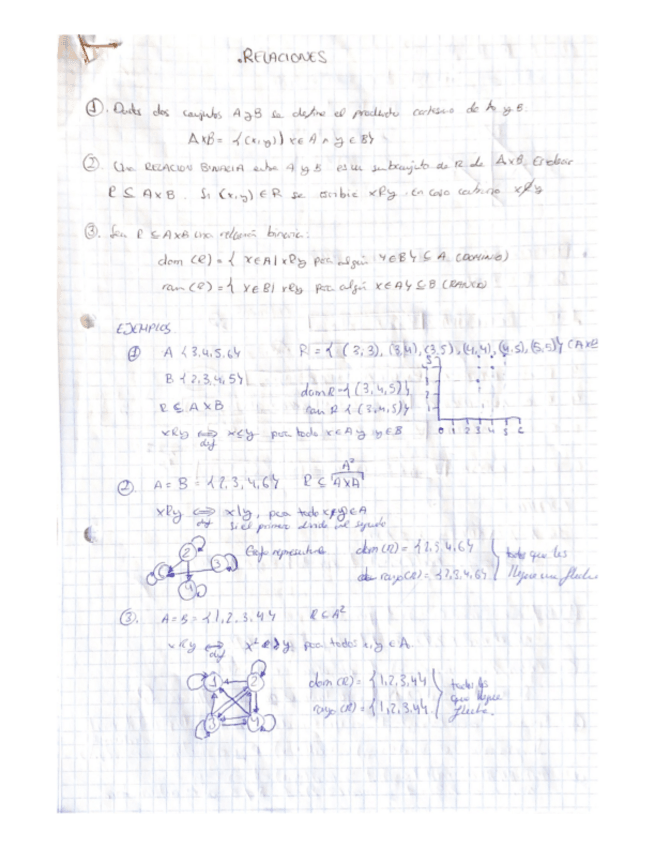 . RELACIONES
①. Dados dos conjuntos A y B se define el producto cartesiano de A y B.
A×B = {(x,y) / x∈A ∧ y∈B}
②. Una RELACION BINARIA entre A y B es un subconjunto de R de A×B. Escribir
R ⊆ A×B. Si (x,y) ∈ R se escribe xRy. En caso contrario
③. Sea R ⊆ A×B una relación binaria:
dom (R) = { x∈A / xRy para algún y∈B} ⊆ A (DOMINIO)
ran (R) = { x∈B / xRy para algún x∈A} ⊆ B (RANGO)
EJEMPLOS
① A {3,4,5,6}
R = { (3,3), (3,4), (3,5), (4,4), (4,5), (5,5)} (A×B
B {2,3,4,5}
R ⊆ A×B
dom R = {3,4,5}
ran R {3,4,5}
xRy ⟺ x≤y para todo x∈A y y∈B
def
0 1 2 3 4 5 6
②. A = B = {2,3,4,6} R ⊆ A×A
A²
xRy ⟺ x|y, para todo x,y∈A
def
Si el primero divide al segundo
2 3 4
Grafo representativo
dom (R) = {2,3,4,6}
rango (R) = {2,3,4,6}
todos que les
llegue una flecha
③. A = B = {1,2,3,4} R ⊂ A²
xRy ⟺ para todo x,y ∈ A.
def
1 2 3 4
dom (R) = {1,2,3,4}
rango (R) = {1,2,3,4}
todos los
que llegue
flecha.